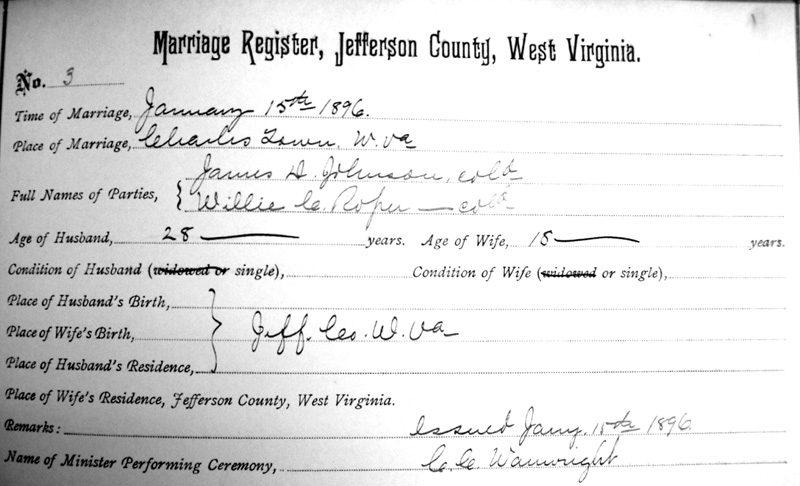 Marriage Register, Jefferson County, West Virginia.
No. 3
Time of Marriage, January 15th 1896.
Place of Marriage, Charles Town. W. va
James D. Johnson, cold
Full Names of Parties,
Willie C. Roper — cold
Age of Husband, 28 — years. Age of Wife, 18 — years.
Condition of Husband (widowed or single), Condition of Wife (widowed or single),
Place of Husband's Birth,
Place of Wife's Birth, Jeff. Co. W. va
Place of Husband's Residence,
Place of Wife's Residence, Jefferson County, West Virginia.
Remarks: Issued Jany. 15th 1896.
Name of Minister Performing Ceremony, C. C. Wainwright